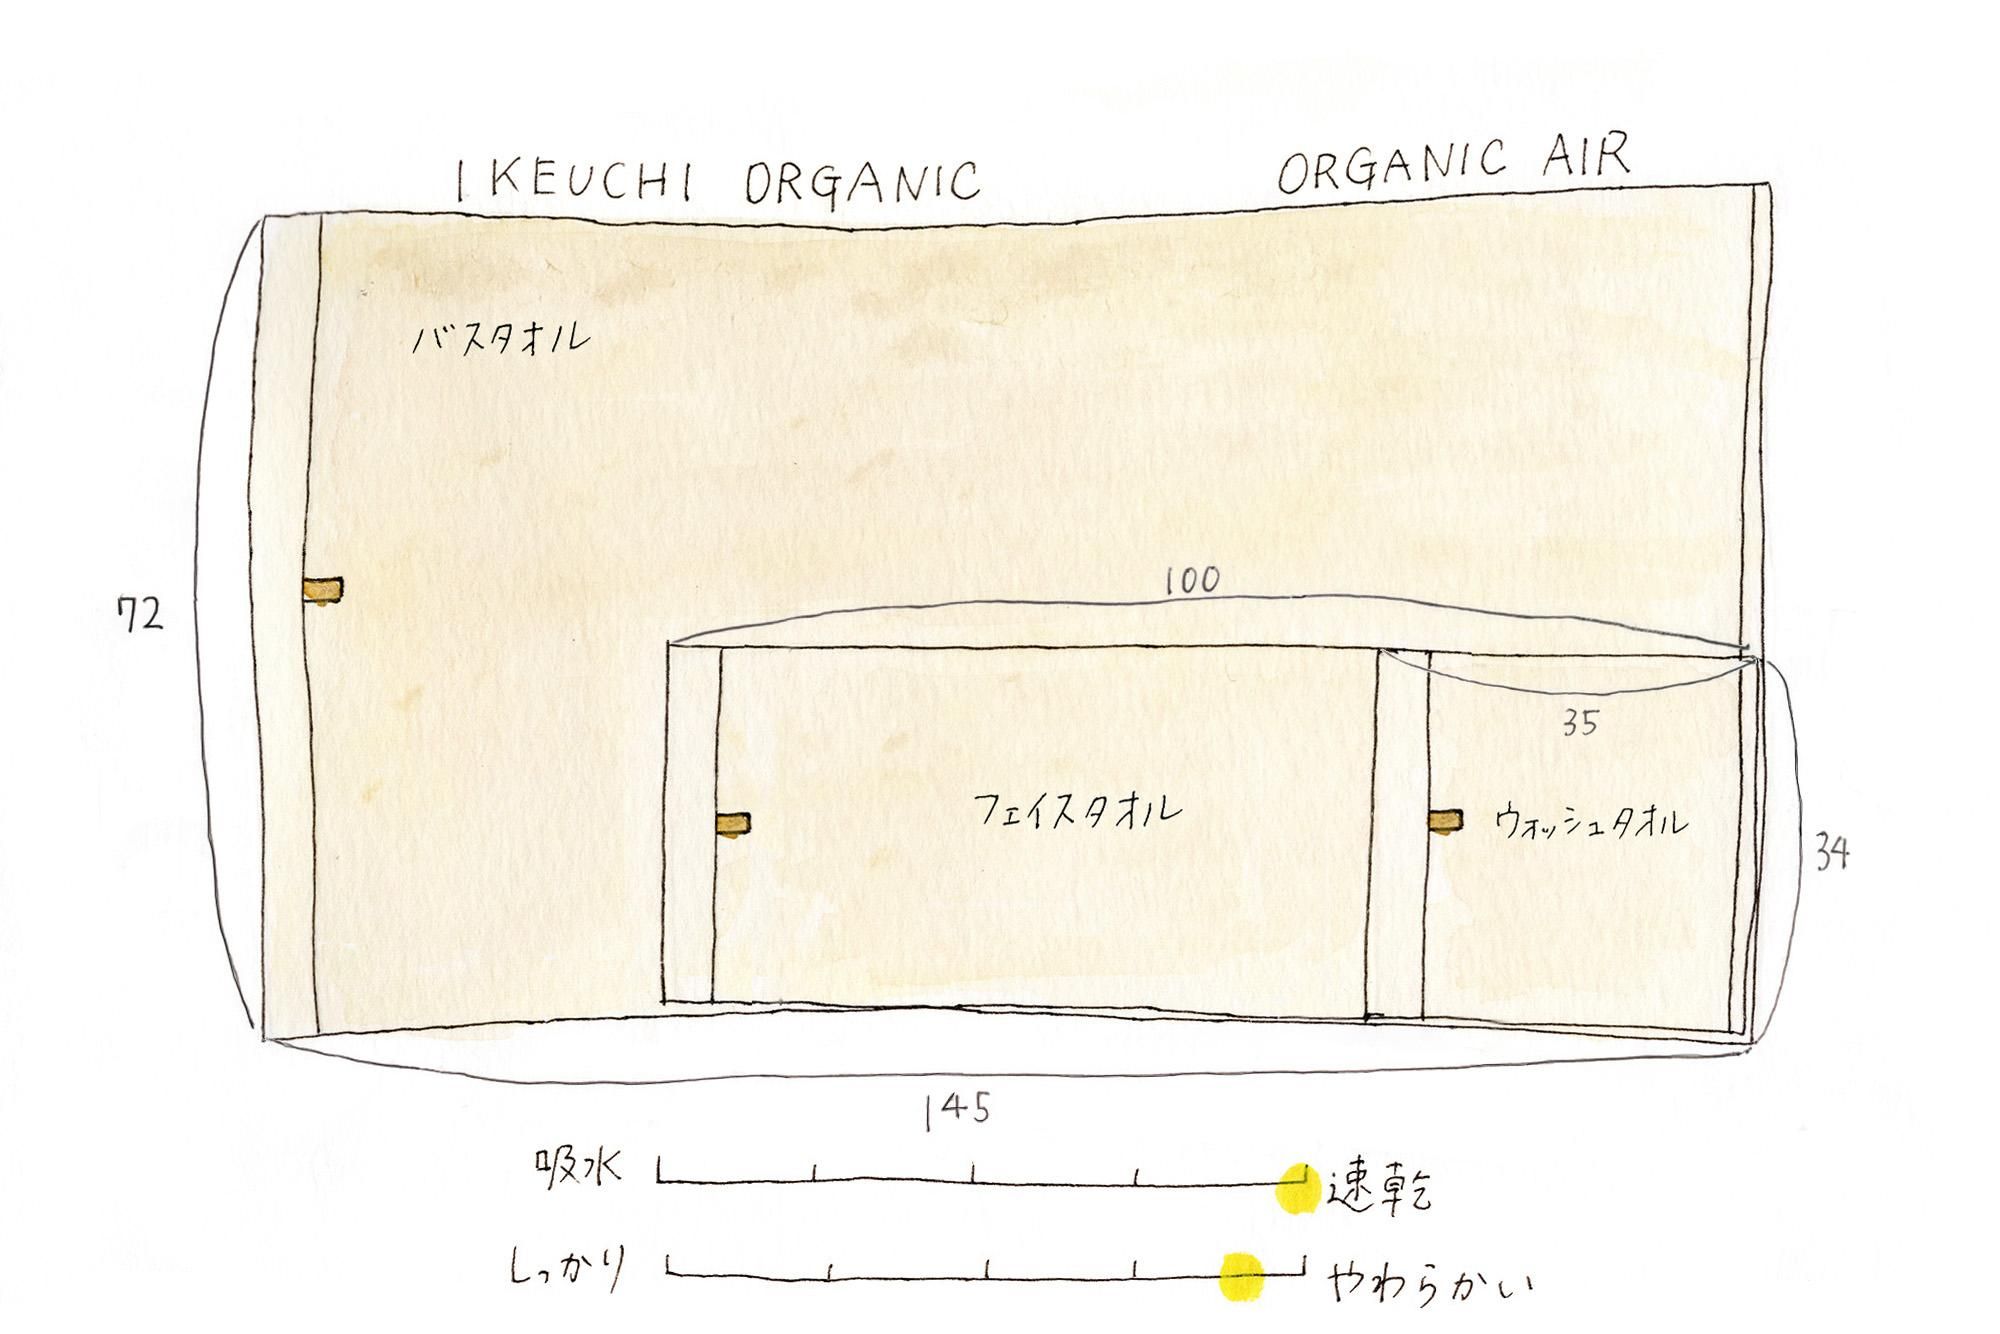 IKEUCHI ORGANIC ORGANIC AIR
バスタオル
100
72
35
フェイスタオル
ウォッシュタオル
34
145
吸水 速乾
しっかり やわらかい